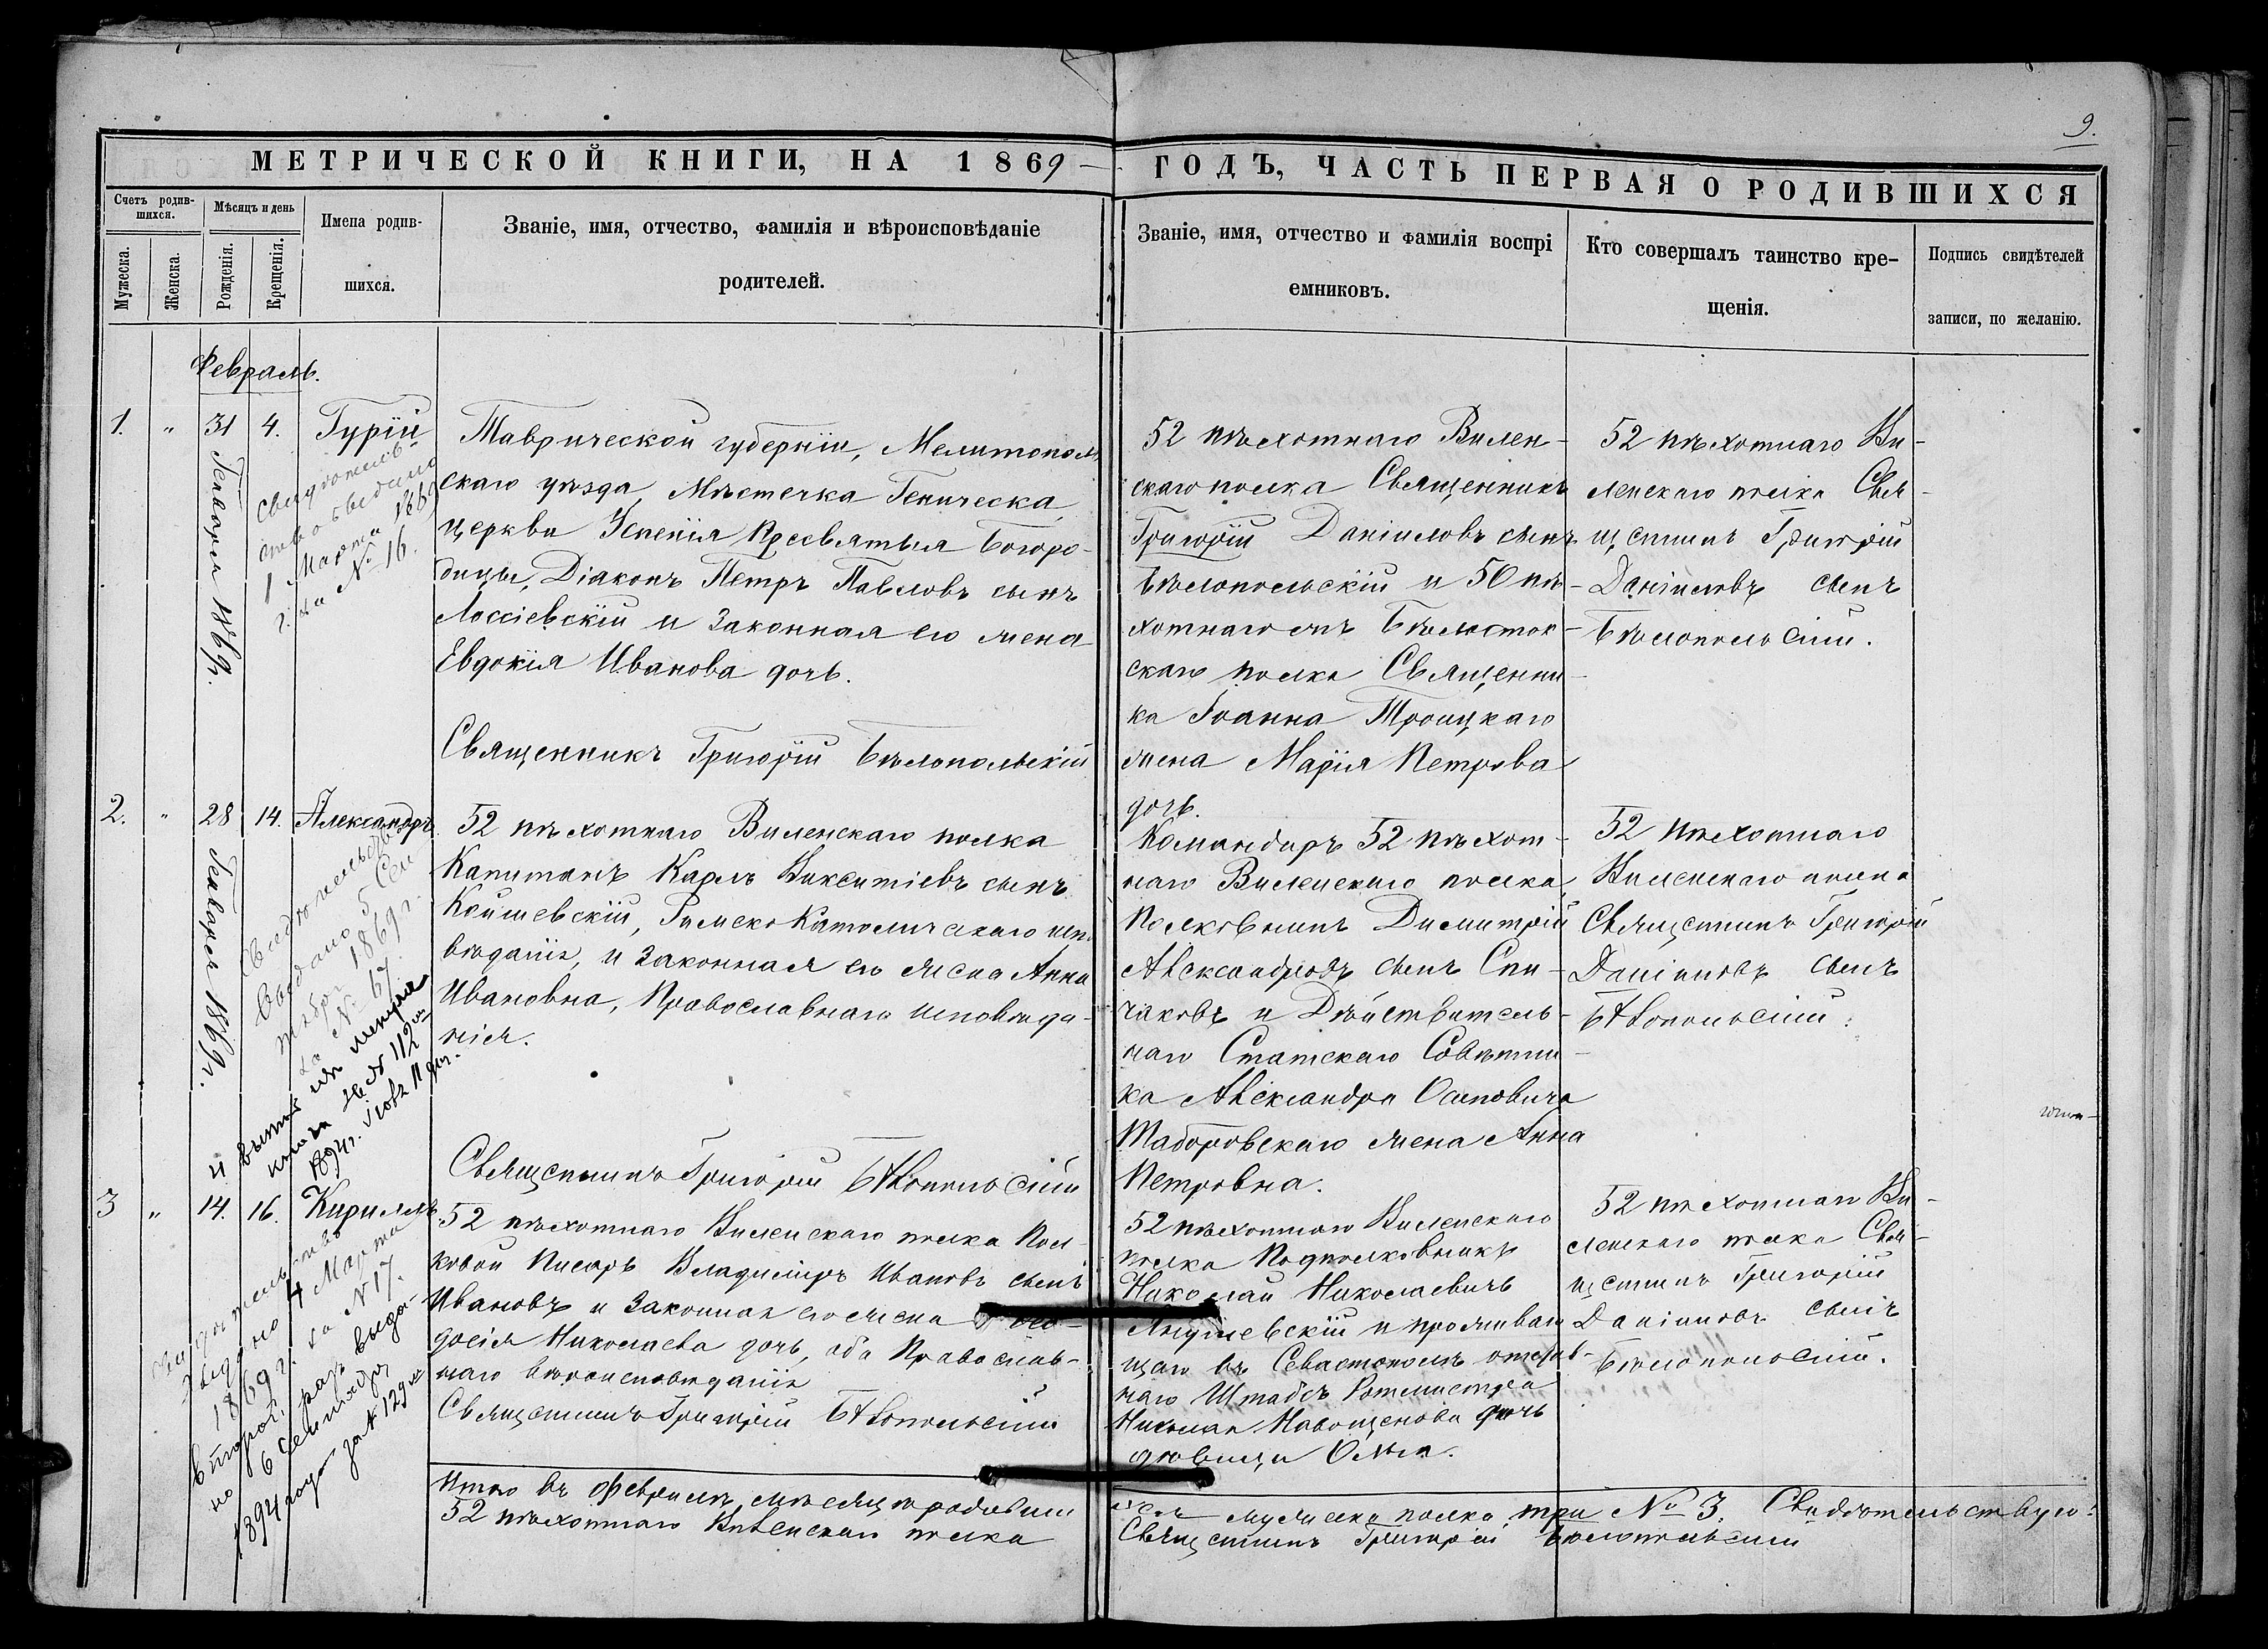 9.
МЕТРИЧЕСКОЙ КНИГИ, НА 1869 ГОДЪ, ЧАСТЬ ПЕРВАЯ О РОДИВШИХСЯ
Счетъ родив-
шихся.
Мужеска.
Женска.
Мѣсяцъ и день
Рожденія.
Крещенія.
Имена родив-
шихся.
Званіе, имя, отчество, фамилія и вѣроисповѣданіе
родителей.
Званіе, имя, отчество и фамилія воспрі
емниковъ.
Кто совершалъ таинство кре-
щенія.
Подпись свидѣтелей
записи, по желанію.
Февраль.
1. " 31 4. Гурій
Генваря 1869 г.
свидѣтель-
ство выдано
1 Марта 1869
г. за № 16.
Таврической губерніи, Мелитополь
скаго уѣзда, Мѣстечка Геническа,
церкви Успенія Пресвятыя Богоро-
дицы, Діаконъ Петръ Павловъ сынъ
Лоссіевскій и законная его жена
Евдокія Иванова дочь.
Священникъ Григорій Бѣлопольскій
52 пѣхотнаго Вилен-
скаго полка Священникъ
Григорій Даніиловъ сынъ
Бѣлопольскій и 50 пѣ-
хотнаго Бѣлосток-
скаго полка Священни-
ка Іоанна Троицкаго
жена Марія Петрова
дочь.
52 пѣхотнаго Ви-
ленскаго полка Свя-
щенникъ Григорій
Даніиловъ сынъ
Бѣлопольскій.
2. " 28 14. Александръ
Генваря 1869 г.
Свидѣтельство
выдано 5 Сен
тября 1869 г.
за № 67.
и выпись изъ метрич
книги за № 112
1894 г.
52 пѣхотнаго Виленскаго полка
Капитанъ Карлъ Викентіевъ сынъ
Коишевскій, Римско Католическаго испо
вѣданія, и законная его жена Анна
Ивановна, Православнаго исповѣда-
нія.
Священникъ Григорій Бѣлопольскій
Командиръ 52 пѣхот-
наго Виленскаго полка,
Полковникъ Димитрій
Александровъ сынъ Спи-
чаковъ и Дѣйствитель-
наго Статскаго Совѣтни-
ка Александра Осиповича
Таборовскаго жена Анна
Петровна.
52 пѣхотнаго
Виленскаго полка
Священникъ Григорій
Даніиловъ сынъ
Бѣлопольскій.
3 " 14. 16. Кириллъ
Свидѣтельство
выдано 4 Марта
1869 г. за № 17.
второй разъ выда-
но 6 Сентября
1894 года за № 129
52 пѣхотнаго Виленскаго полка Пол-
ковой Писарь Владиміръ Ивановъ сынъ
Ивановъ и законная его жена Ѳео-
досія Николаева дочь, оба Православ-
наго вѣроисповѣданія
Священникъ Григорій Бѣлопольскій
52 пѣхотнаго Виленскаго
полка Подполковникъ
Николай Николаевичъ
Янушевскій и прожива
щаго въ Севастополѣ отстав-
наго Штабсъ Ротмистра
Николая дочь
дѣвица Ольга.
52 пѣхотнаго Ви-
ленскаго полка Свя-
щенникъ Григорій
Даніиловъ сынъ
Бѣлопольскій.
Итого въ Февралѣ мѣсяцѣ родивши
хся мужеска полка три № 3. Свидѣтельствую:
52 пѣхотнаго Виленскаго полка
Священникъ Григорій Бѣлопольскій